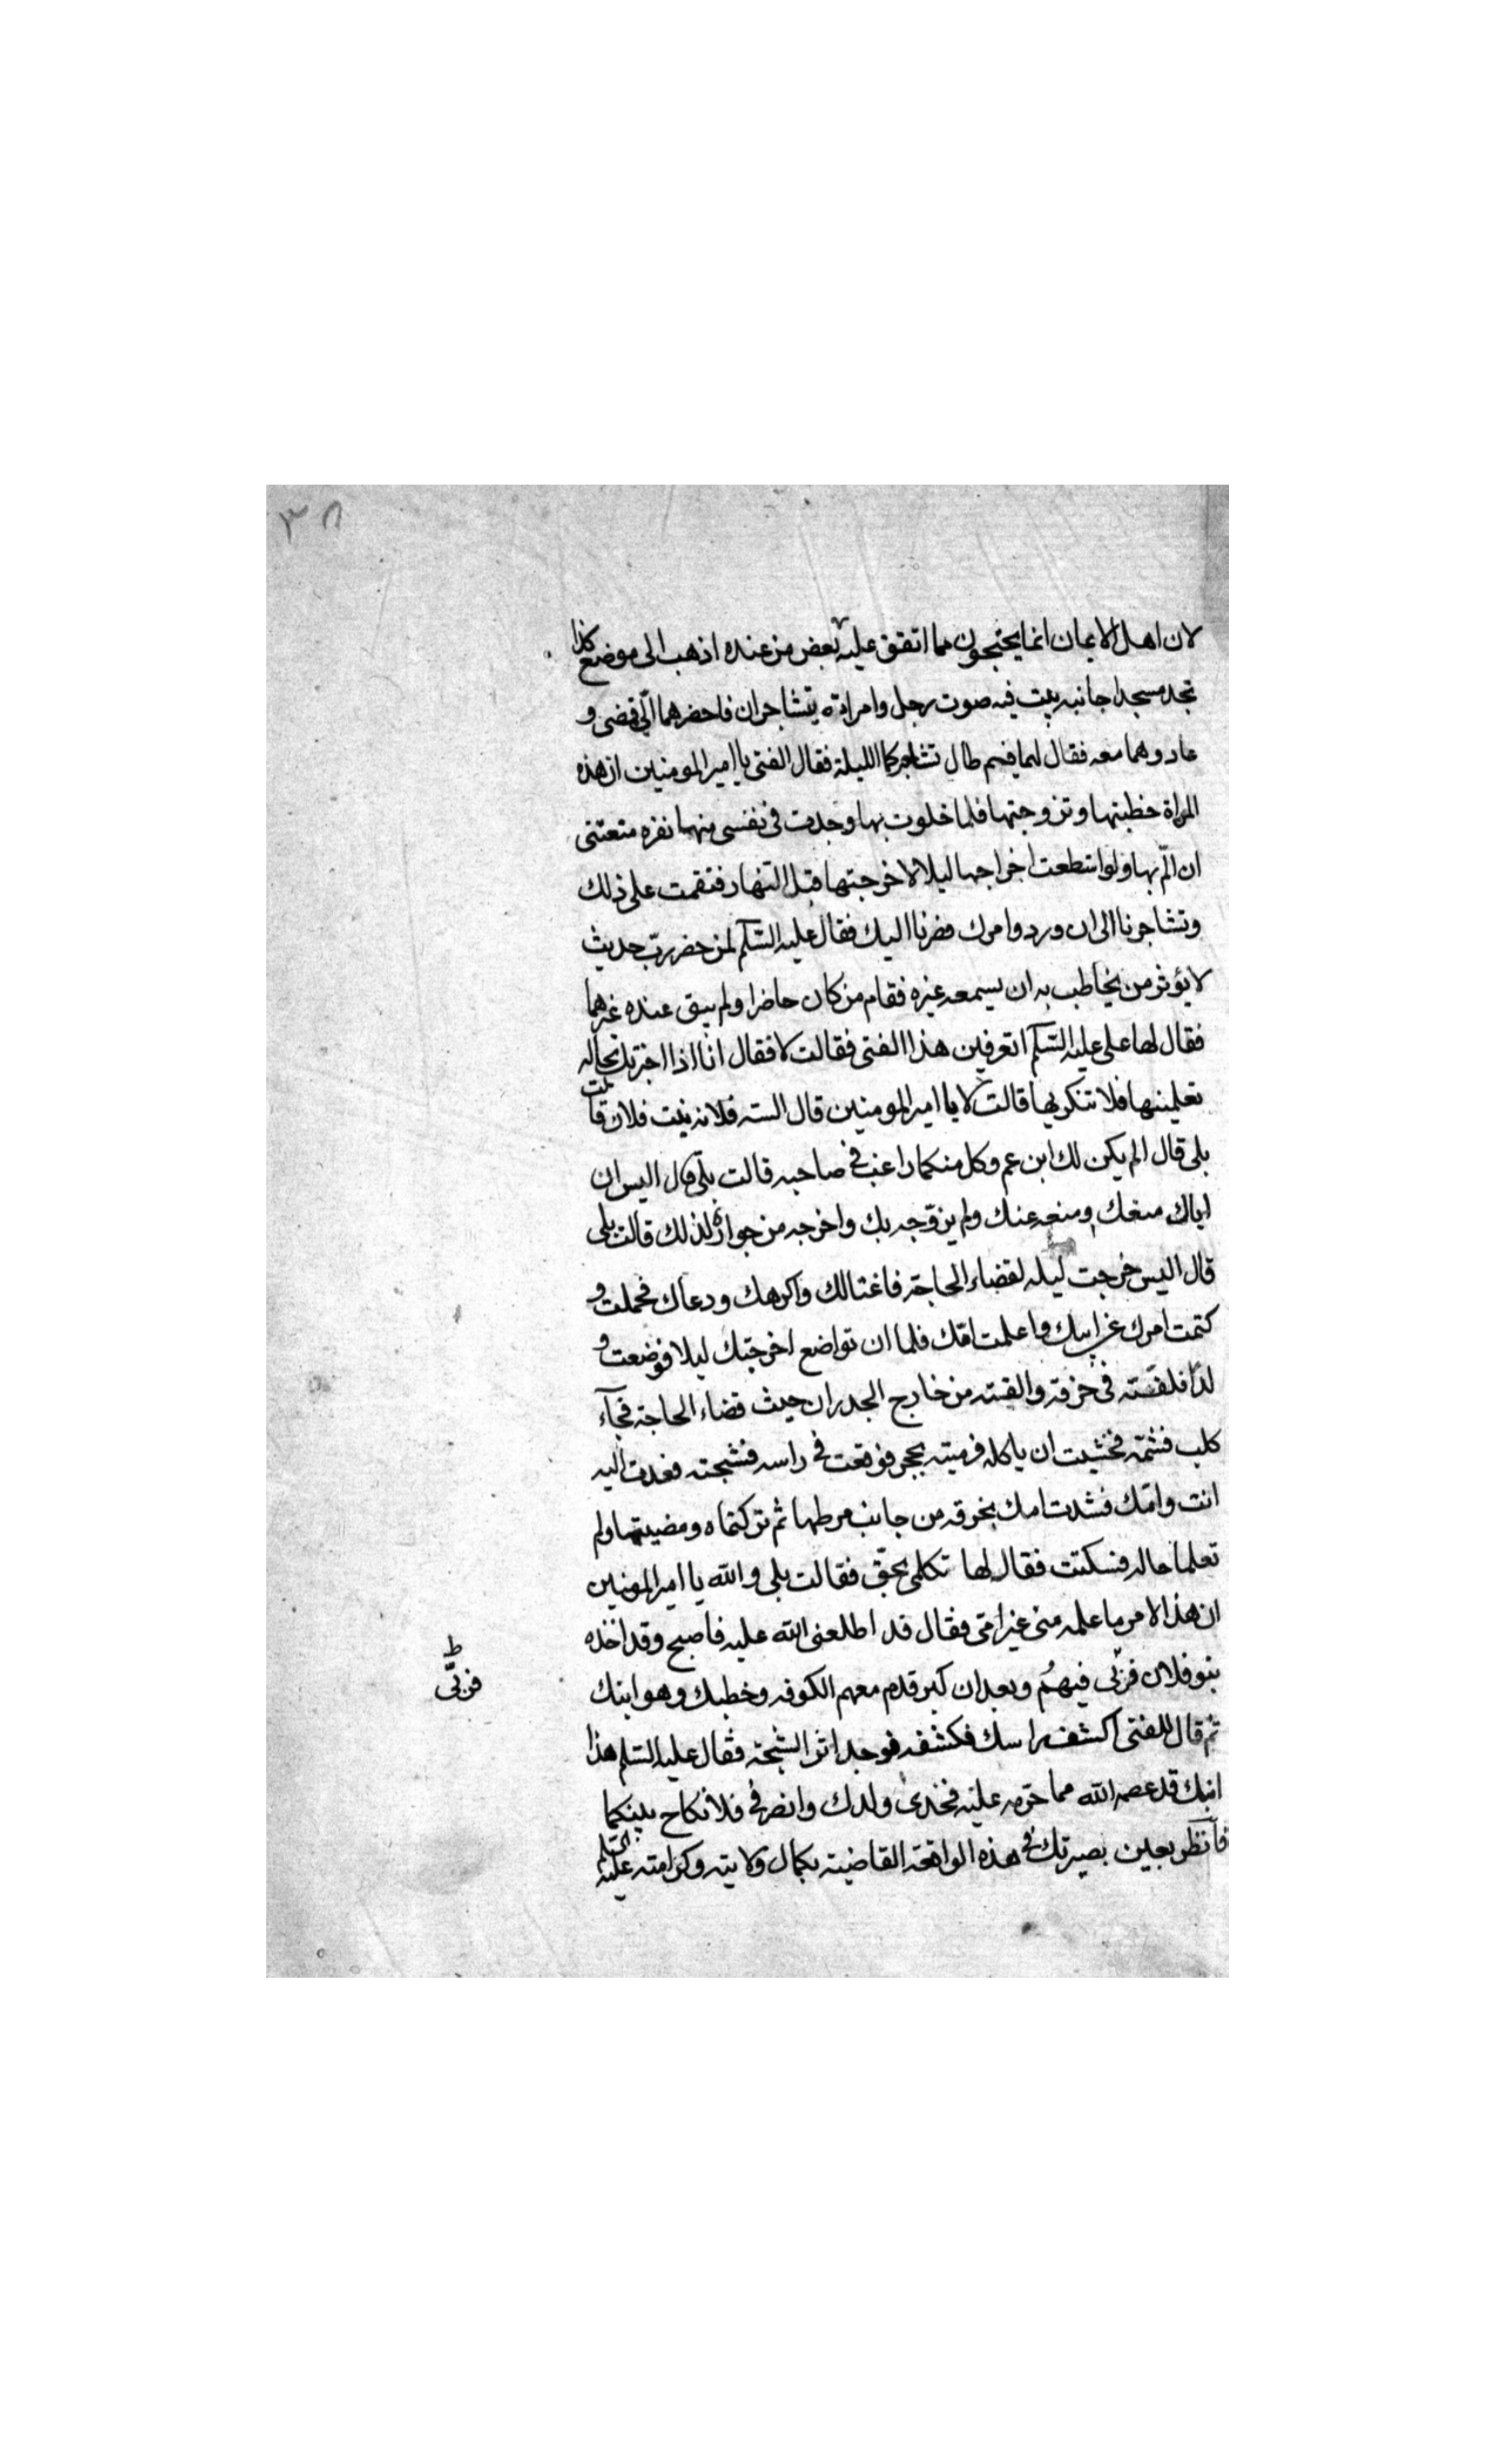 ٣٨
لان اهل الايمان انما يحتجون مما اتفق عليه بعض من عنده اذهب الى موضع كذا
تجد مسجدا جانبه بيت فيه صوت رجل وامراة يتشاجران فاحضرهما الّي فمضى و
عاد وهما معه فقال لهما فيم طال تشاجركما الليلة فقال الفتى يا امير المومنين ان هذه
المراة خطبتها وتزوجتها فلما خلوت بها وجدت في نفسى منها نفره منعتنى
ان الّم بها ولو استطعت اخراجها ليلا لاخرجتها قبل النهار فنقمت على ذلك
وتشاجرنا الى ان ورد وامرك فصرنا اليك فقال عليه السّلم لمن حضر ربّ حديث
لا يؤثر من يخاطب به ان يسمعه غيره فقام من كان حاضرا ولم يبق عنده غيرهما
فقال لها على عليه السّلم اتعرفين هذا الفتى فقالت لا فقال انا اذا اخبرتك بحاله
تعلمينها فلا تنكريها قالت لا يا امير المومنين قال الست فلانه بنت فلان قالت
بلى قال الم يكن لك ابن عم وكل منكما راغب في صاحبه قالت بلى قال اليس ان
اباك منعك ومنعه عنك ولم يزوّجه بك واخرجه من جواره لذلك قالت بلى
قال اليس خرجت ليله لقضاء الحاجة فاغتالك واكرهك ودعاك فحملت و
كتمت امرك عن ابيك واعلمت امّك فلما ان تواضع اخرجتك ليلا فوضعت و
لدًا فلففته في خرقة والقيته من خارج الجدران حيث قضاء الحاجة فجآء
كلب فشمّه فخشيت ان ياكله فرميته بحجر فوقعت في راسه فشجته فعدت اليه
انت وامّك فشدت امك بخرقه من جانب مرطها ثم تركتماه ومضيتما ولم
تعلما حاله فسكتت فقال لها تكلمى بحقّ فقالت بلى والله يا امير المومنين
ان هذا الامر ما علمه منى غير امّى فقال قد اطلعنى الله عليه فاصبح وقد اخذه
بنو فلان فربّى فيهم وبعد ان كبر قدم معهم الكوفه وخطبك وهو ابنك
ط
فربّى
ثم قال للفتى اكشف راسك فكشفه فوجد اثر الشجة فقال عليه السّلم هذا
ابنك قد عصمه الله مما حرّمه عليه فخذى ولدك وانصرفى فلا نكاح بينكما
فانظر بعين بصيرتك في هذه الواقعة القاضية بكمال ولايته وكرامته عليه السّلم